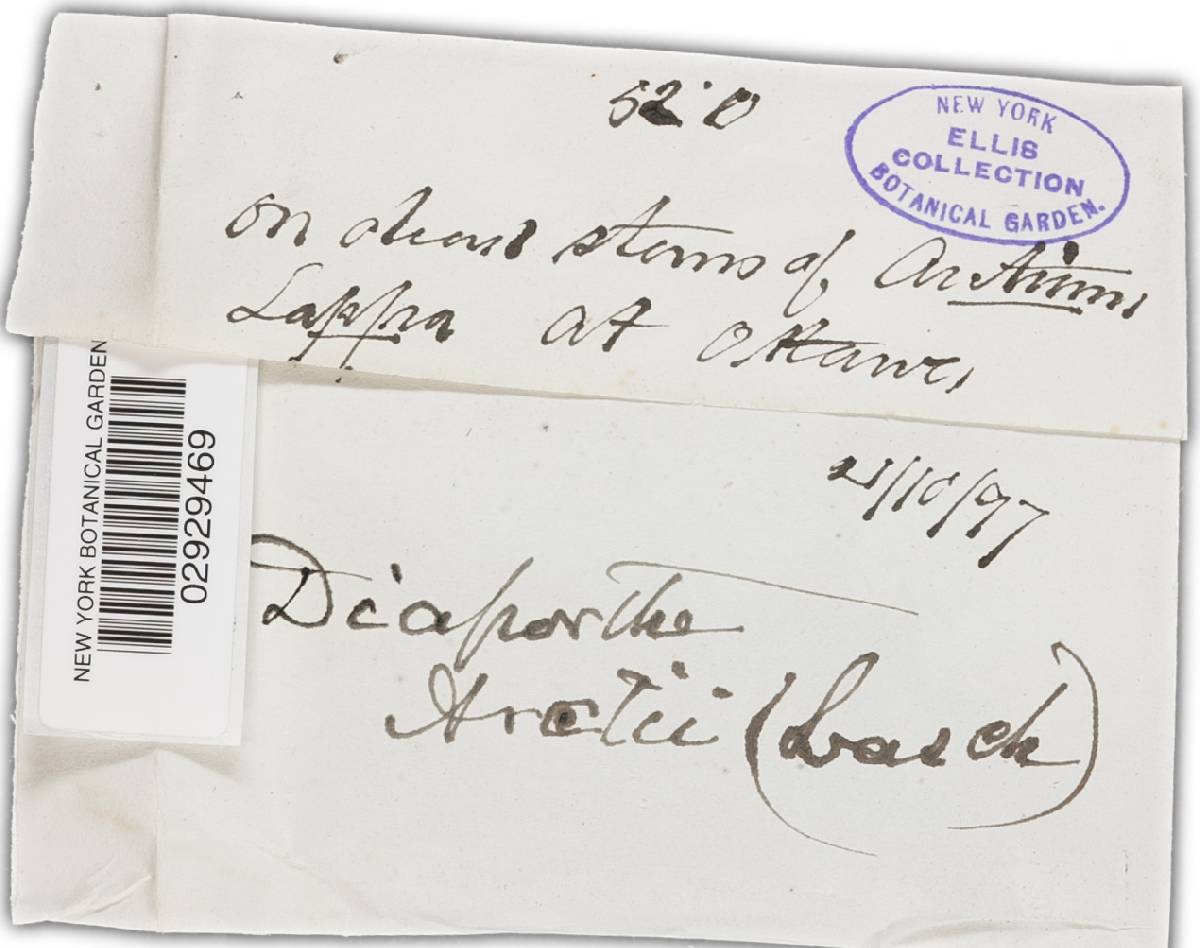 52·0
NEW YORK
ELLIS
COLLECTION
BOTANICAL GARDEN.
on dead stems of Arctium
Lappa at Ottawa
21/10/97
Diaporthe
Arctii (Lasch)
NEW YORK BOTANICAL GARDEN
02929469